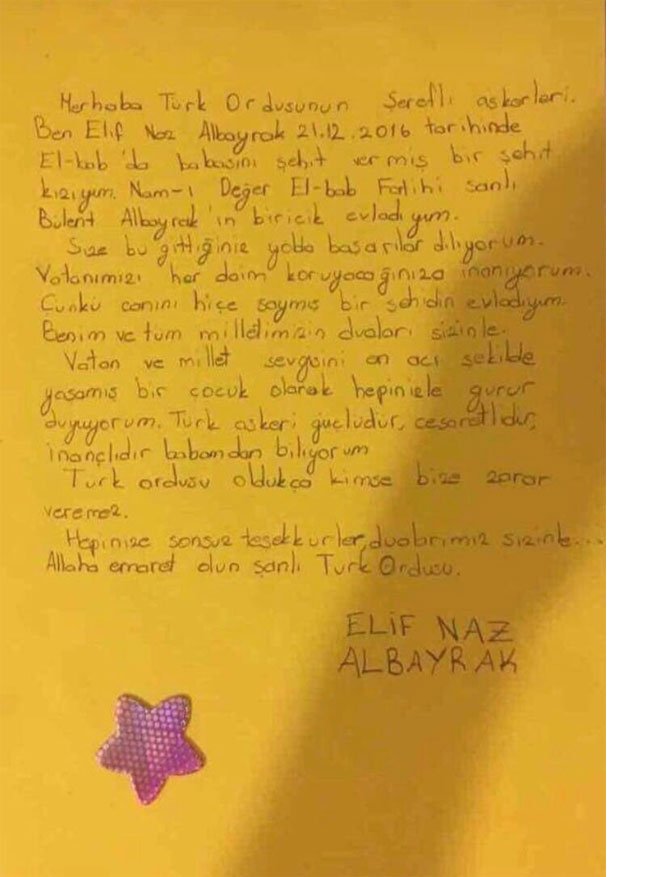 Merhaba Türk Ordusunun Şerefli askerleri.
Ben Elif Naz Albayrak 21.12.2016 tarihinde
El-bab'da babasını şehit vermiş bir şehit
kızıyım. Nam-ı Değer El-bab Fatihi şanlı
Bülent Albayrak'ın biricik evladıyım.
Size bu gittiğiniz yolda başarılar diliyorum.
Vatanımızı her daim koruyacağınıza inanıyorum.
Çünkü canını hiçe saymış bir şehidin evladıyım.
Benim ve tüm milletimizin duaları sizinle.
Vatan ve millet sevgsini en acı şekilde
yaşamış bir çocuk olarak hepinizle gurur
duyuyorum. Türk askeri güçlüdür, cesaretlidir,
inançlıdır babamdan biliyorum
Türk ordusu oldukça kimse bize zarar
veremez.
Hepinize sonsuz teşekkürler, dualarımız sizinle...
Allaha emaret olun şanlı Türk Ordusu.
ELİF NAZ
ALBAYRAK